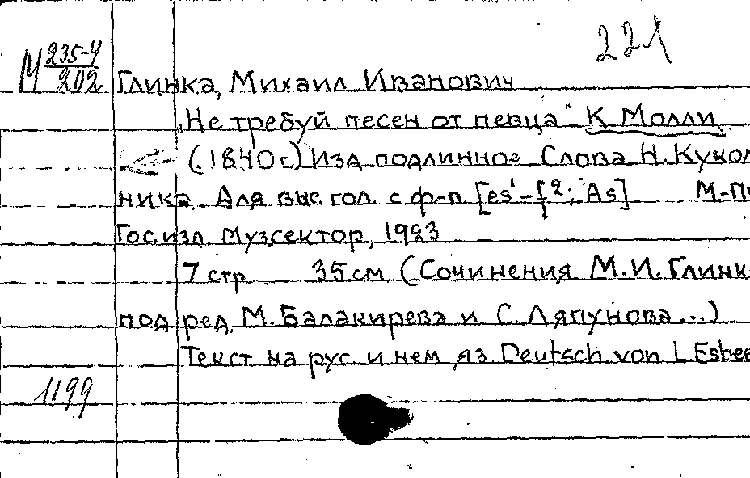 221
М 235-4
202
Глинка, Михаил Иванович
"Не требуй песен от певца" К Молли
(1840г.) Изд подлинное Слова Н. Куколь
ника. Для выс гол. с ф-п. [es¹-f²; As] М-П
Госизд Музсектор, 1923
7 стр 35 см (Сочинения М.И. Глинк
под ред. М. Балакирева и С. Ляпунова...)
Текст на рус. и нем яз. Deutsch von L Esbee
1199